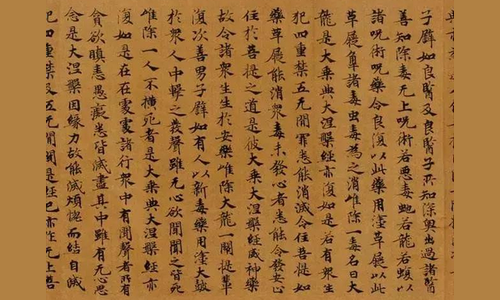 子辟如良醫及良醫子所知深奧出過諸醫
善知除毒无上呪術若惡毒虵若龍若蝮以
諸呪術呪藥令良復以此藥用塗革屣以此
革屣觸諸毒虫毒為之消唯除一毒名曰大
龍是大乘典大涅槃經亦復如是若有衆生
犯四重禁五无間罪悉能消滅令住菩提如
藥革屣能消衆毒未發心者悉能令發安心
住於菩提之道是彼大乘大涅槃經威神藥
故令諸衆生生於安樂唯除大龍一闡提輩
復次善男子辟如有人以新毒藥用塗大鼓
於衆人中擊之發聲雖无心欲聞聞之皆死
唯除一人不横死者是大乘典大涅槃經亦
復如是在在處處諸行衆中有聞聲者所有
貪欲瞋恚愚癡悉皆滅盡其中雖有无心思
念是大涅槃因緣力故能滅煩惱而結自滅
犯四重禁及五无間聞是經已亦作无上菩